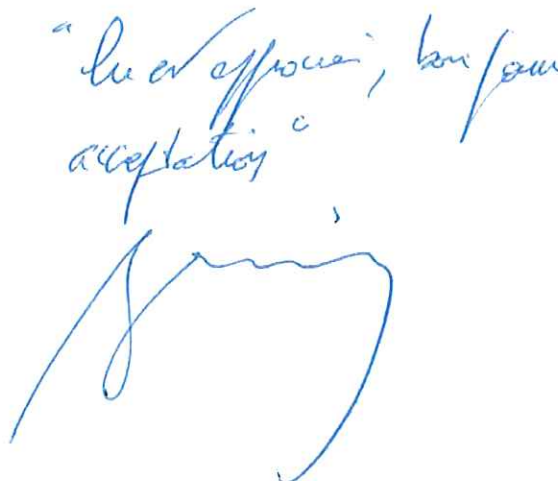 "lu et approuvé, bon pour
acceptation"